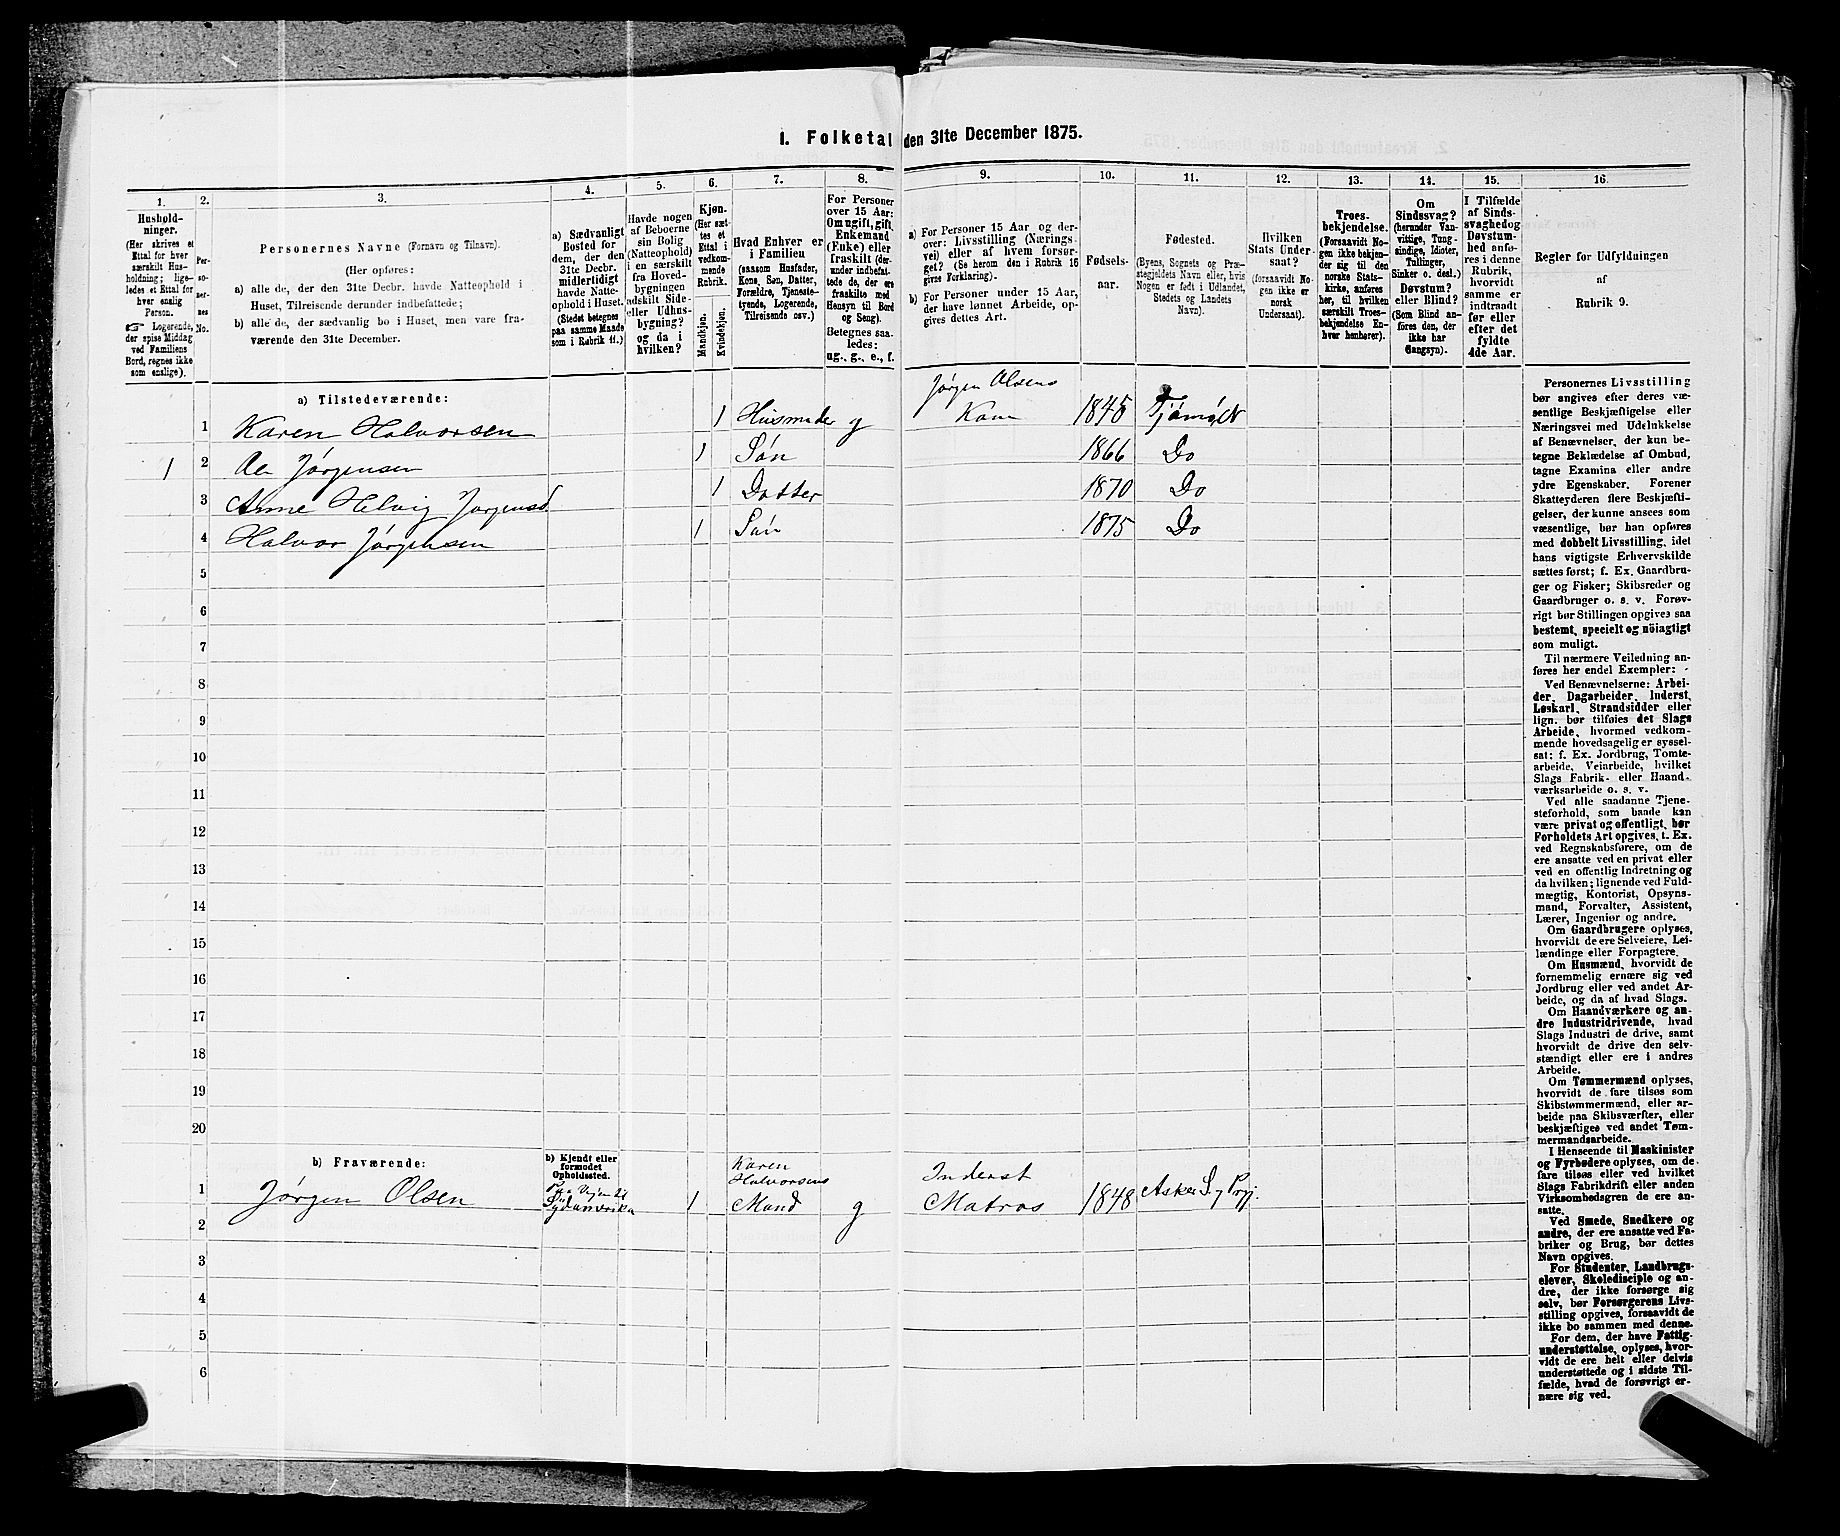 1. Folketal den 31te December 1875.
1.
2.
3.
4.
5.
6.
7.
8.
9.
10.
11.
12.
13.
14.
15.
16.
Hushold-
ninger.
(Her skrives et
Ettal for hver
særskilt Hus-
holdning; lige-
ledes et Ettal for
hver enslig
Person.
☞ Logerende,
der spise Middag
ved Familiens
Bord, regnes ikke
som enslige).
Per-
so-
ner-
nes
No.
Personernes Navne (Fornavn og Tilnavn).
(Her opføres:
a) alle de, der den 31te Decbr. havde Natteophold i
Huset, Tilreisende derunder indbefattede;
b) alle de, der sædvanlig bo i Huset, men vare fra-
værende den 31te December.
a) Sædvanligt
Bosted for
dem, der den
31te Decbr.
midlertidigt
havde Natte-
ophold i Huset.
(Stedet betegnes
paa samme Maade
som i Rubrik 11.)
Havde nogen
af Beboerne
sin Bolig
(Natteophold)
i en særskilt
fra Hoved-
bygningen
adskilt Side-
eller Udhus-
bygning?
og da i
hvilken?
Kjøn.
(Her sæt-
tes et
Ettal i
vedkom-
mende
Rubrik.
Mandkjøn.
Kvindekjøn.
Hvad Enhver er
i Familien
(saasom Husfader,
Kone, Søn, Datter,
Forældre, Tjeneste-
tyende, Logerende,
Tilreisende osv.)
For Personer
over 15 Aar:
Om ugift, gift,
Enkemand
(Enke) eller
fraskilt (der-
under indbefat-
tede de, der ere
fraskilte med
Hensyn til Bord
og Seng).
Betegnes saa-
ledes:
ug., g., e., f.
a) For Personer 15 Aar og der-
over: Livsstilling (Nærings-
vei) eller af hvem forsør-
get? (Se herom den i Rubrik 16
givne Forklaring).
b) For Personer under 15 Aar,
der have lønnet Arbeide, op-
gives dettes Art.
Fødsels-
aar.
Fødested.
(Byens, Sognets og Præ-
stegjeldets Navn eller, hvis
Nogen er født i Udlandet,
Stedets og Landets
Navn).
Hvilken
Stats Under-
saat?
(forsaavidt No-
gen ikke er
norsk
Undersaat).
Troes-
bekjendelse.
(Forsaavidt No-
gen ikke bekjen-
der sig til den
norske Stats-
kirke, anføres
her, til hvilken
særskilt Troes-
bekjendelse En-
hver henhører).
Om
Sindssvag?
(herunder Van-
vittige, Tung-
sindige, Idioter,
Tullinger,
Sinker o. desl.)
Døvstum?
eller Blind?
(Som Blind an-
føres den, der
ikke har
Gangsyn).
I Tilfælde
af Sinds-
svaghed og
Døvstum-
hed anfø-
res i denne
Rubrik,
hvorvidt
samme er
indtraadt
før eller
efter det
fyldte
4de Aar.
Regler for Udfyldningen
af
Rubrik 9.
a) Tilstedeværende:
1 Karen Halvorsen 1 Husmoder g Jørgen Olsens Kone 1848 Tjømø
1 2 Jørgensen 1 Søn 1866 Do
3 Anne Helvig Jørgensd 1 Datter 1870 Do
4 Halvor Jørgensen 1 Søn 1875 Do
5
6
7
8
9
10
11
12
13
14
15
16
17
18
19
20
b) Fraværende:
b) Kjendt eller
formodet
Opholdssted.
1 Jørgen Olsen Paa Vejen til Sydamerika 1 Karen Halvorsens Mand g Inderst Matros 1848 Asker S. Prgj.
2
3
4
5
6
Personernes Livsstilling
bør angives efter deres væ-
sentlige Beskjæftigelse eller
Næringsvei med Udelukkelse
af Benævnelser, der kun be-
tegne Beklædelse af Ombud,
tagne Examina eller andre
ydre Egenskaber. Forener
Skatteyderen flere Beskjæfti-
gelser, der kunne ansees som
væsentlige, bør han opføres
med dobbelt Livsstilling, idet
hans vigtigste Erhvervskilde
sættes først; f. Ex. Gaardbru-
ger og Fisker; Skibsreder og
Gaardbruger o. s. v. Forøv-
rigt bør Stillingen opgives saa
bestemt, specielt og nöiagtigt
som muligt.
Til nærmere Veiledning an-
føres her endel Exempler:
Ved Benævnelserne: Arbei-
der, Dagarbeider, Inderst,
Løskarl, Strandsidder eller
lign. bør tilføies det Slags
Arbeide, hvormed vedkom-
mende hovedsagelig er syssel-
sat; f. Ex. Jordbrug, Tomte-
arbeide, Veiarbeide, hvilket
Slags Fabrik- eller Haand-
værksarbeide o. s. v.
Ved alle saadanne Tjene-
steforhold, som baade kan
være privat og offentligt, bør
Forholdets Art opgives, t. Ex.
ved Regnskabsførere, om de
ere ansatte ved en privat eller
ved en offentlig Indretning og
da hvilken; lignende ved Fuld-
mægtig, Kontorist, Opsyns-
mand, Forvalter, Assistent,
Lærer, Ingeniør og andre.
Om Gaardbrugere oplyses,
hvorvidt de ere Selveiere, Lei-
lændinge eller Forpagtere.
Om Husmænd, hvorvidt de
fornemmelig ernære sig ved
Jordbrug eller ved andet Ar-
beide, og da af hvad Slags.
Om Haandværkere og an-
dre Industridrivende, hvad
Slags Industri de drive, samt
hvorvidt de drive den selv-
stændigt eller ere i andres
Arbeide.
Om Tømmermænd oplyses,
hvorvidt de fare tilsøs som
Skibstømmermænd, eller ar-
beide paa Skibsværfter, eller
beskjæftiges ved andet Tøm-
mermandsarbeide.
I Henseende til Maskinister
og Fyrbødere oplyses, om de
fare tilsøs eller ved hvilket
Slags Fabrikdrift eller anden
Virksomhedsgren de ere an-
satte.
Ved Smede, Snedkere og
andre, der ere ansatte ved Fa-
briker og Brug, bør dettes
Navn opgives.
For Studenter, Landbrugs-
elever, Skoledisciple og an-
dre, der ikke forsørge sig
selv, bør Forsørgerens Livs-
stilling opgives, forsaavidt de
ikke bo sammen med denne.
For dem, der have Fattig-
understøttelse, oplyses, hvor-
vidt de ere helt eller delvis
understøttede og i sidste Til-
fælde, hvad de forøvrigt er-
nære sig ved.